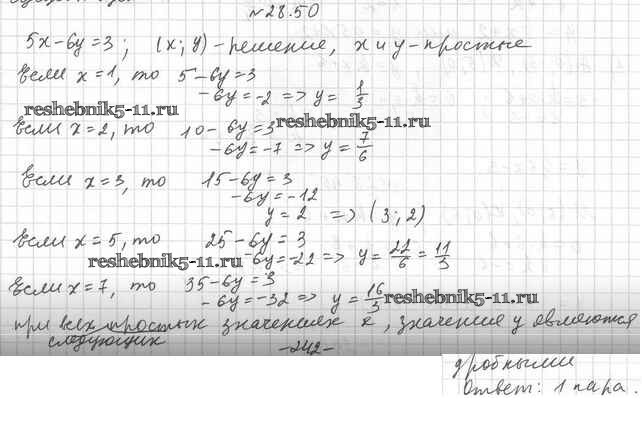 №28.50
5x-6y=3; (x; y)-решение, x и y-простые
Если x=1, то 5-6y=3
-6y=-2 => y= 1/3
reshebnik5-11.ru
Если x=2, то 10-6y=3
reshebnik5-11.ru
-6y=-7 => y= 7/6
Если x=3, то 15-6y=3
-6y=-12
y=2 => (3;2)
Если x=5, то 25-6y=3
reshebnik5-11.ru
-6y=-22 => y= 22/6 = 11/3
Если x=7, то 35-6y=3
-6y=-32 => y= 16/3
reshebnik5-11.ru
при всех простых значениях x, значение y являются
следующих
-242-
дробными
Ответ: 1 пара.